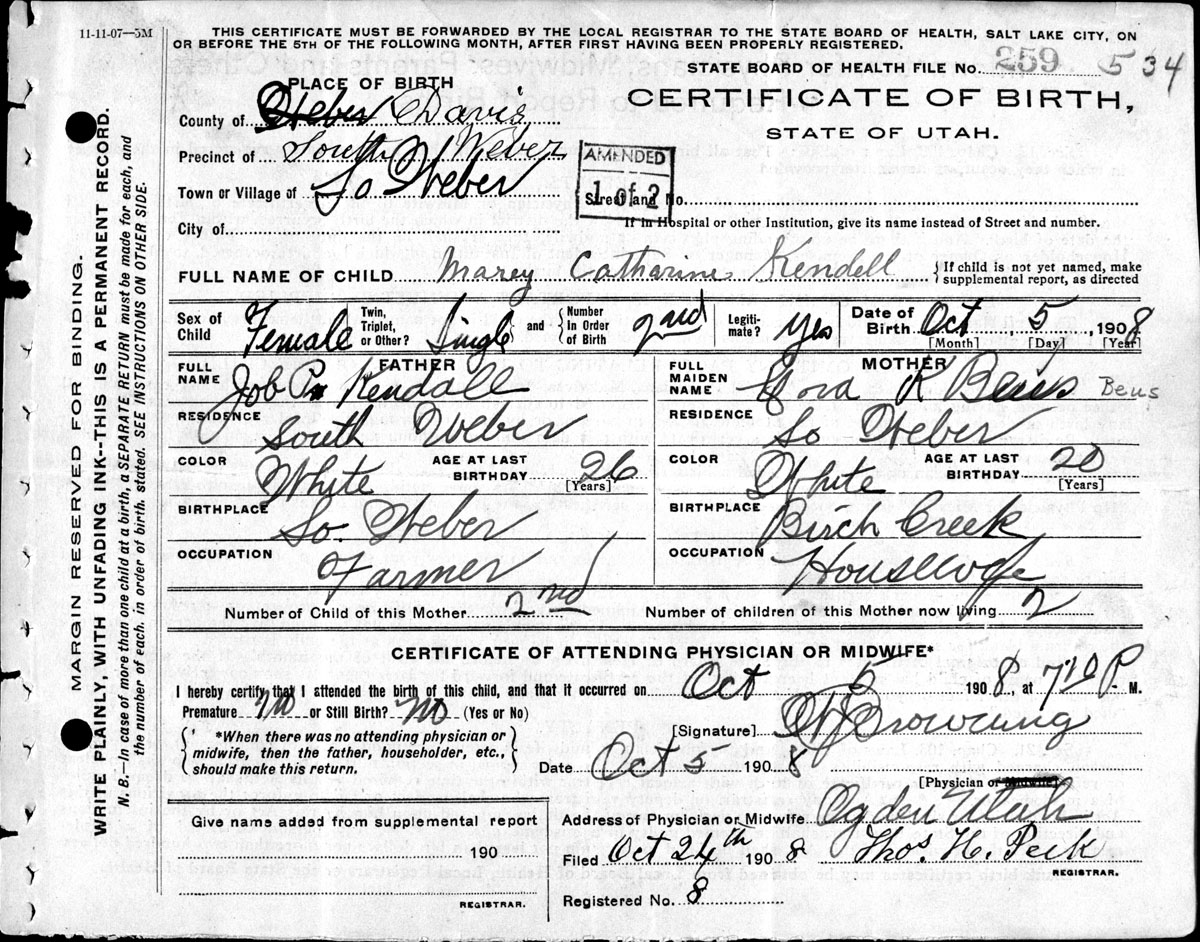 11-11-07--5M
THIS CERTIFICATE MUST BE FORWARDED BY THE LOCAL REGISTRAR TO THE STATE BOARD OF HEALTH, SALT LAKE CITY, ON
OR BEFORE THE 5TH OF THE FOLLOWING MONTH, AFTER FIRST HAVING BEEN PROPERLY REGISTERED.
STATE BOARD OF HEALTH FILE No. 259 534
PLACE OF BIRTH
CERTIFICATE OF BIRTH,
STATE OF UTAH.
County of Weber Davis
Precinct of South Weber
AMENDED
1 of 2
Town or Village of So Weber
Street and No.
City of
If in Hospital or other Institution, give its name instead of Street and number.
FULL NAME OF CHILD Marey Catharine Kendell { If child is not yet named, make supplemental report, as directed
Sex of Child Female Twin, Triplet, or Other? Single and Number In Order of Birth 2nd Legitimate? Yes Date of Birth Oct 5, 1908
[Month] [Day] [Year]
FATHER
MOTHER
FULL NAME Job P Kendall
FULL MAIDEN NAME K Beus Beus
RESIDENCE South Weber
RESIDENCE So Weber
COLOR White AGE AT LAST BIRTHDAY 26 [Years]
COLOR White AGE AT LAST BIRTHDAY 20 [Years]
BIRTHPLACE So. Weber
BIRTHPLACE Birch Creek
OCCUPATION Farmer
OCCUPATION Housewife
Number of Child of this Mother 2nd Number of children of this Mother now living 2
CERTIFICATE OF ATTENDING PHYSICIAN OR MIDWIFE*
I hereby certify that I attended the birth of this child, and that it occurred on Oct 5 1908, at 7 10 P. M.
Premature No or Still Birth? No (Yes or No)
[Signature] Browning
{ *When there was no attending physician or midwife, then the father, householder, etc., should make this return. }
Date Oct 5 1908
[Physician or Midwife]
Give name added from supplemental report
Address of Physician or Midwife Ogden Utah
190
Filed Oct 24th 1908 Thos. H. Peek
REGISTRAR.
Registered No. 8
REGISTRAR.
MARGIN RESERVED FOR BINDING.
WRITE PLAINLY, WITH UNFADING INK--THIS IS A PERMANENT RECORD.
N. B.—In case of more than one child at a birth, a SEPARATE RETURN must be made for each, and
the number of each, in order of birth, stated. SEE INSTRUCTIONS ON OTHER SIDE.